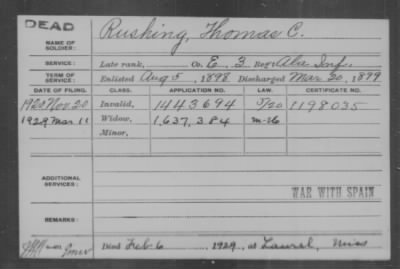 DEAD
NAME OF SOLDIER: Rushing, Thomas C.
SERVICE: Late rank, Co. E, 3 Reg't Ala Inf.
TERM OF SERVICE: Enlisted Aug 5, 1898 Discharged Mar. 20, 1899
DATE OF FILING. CLASS. APPLICATION NO. LAW. CERTIFICATE NO.
Nov 20 Invalid, 1443694 1198035
1929 Mar 11 Widow, 1,637,384 m-16
Minor,
ADDITIONAL SERVICES:
WAR WITH SPAIN
REMARKS:
Died Feb 6, 1929, at Laurel, Miss